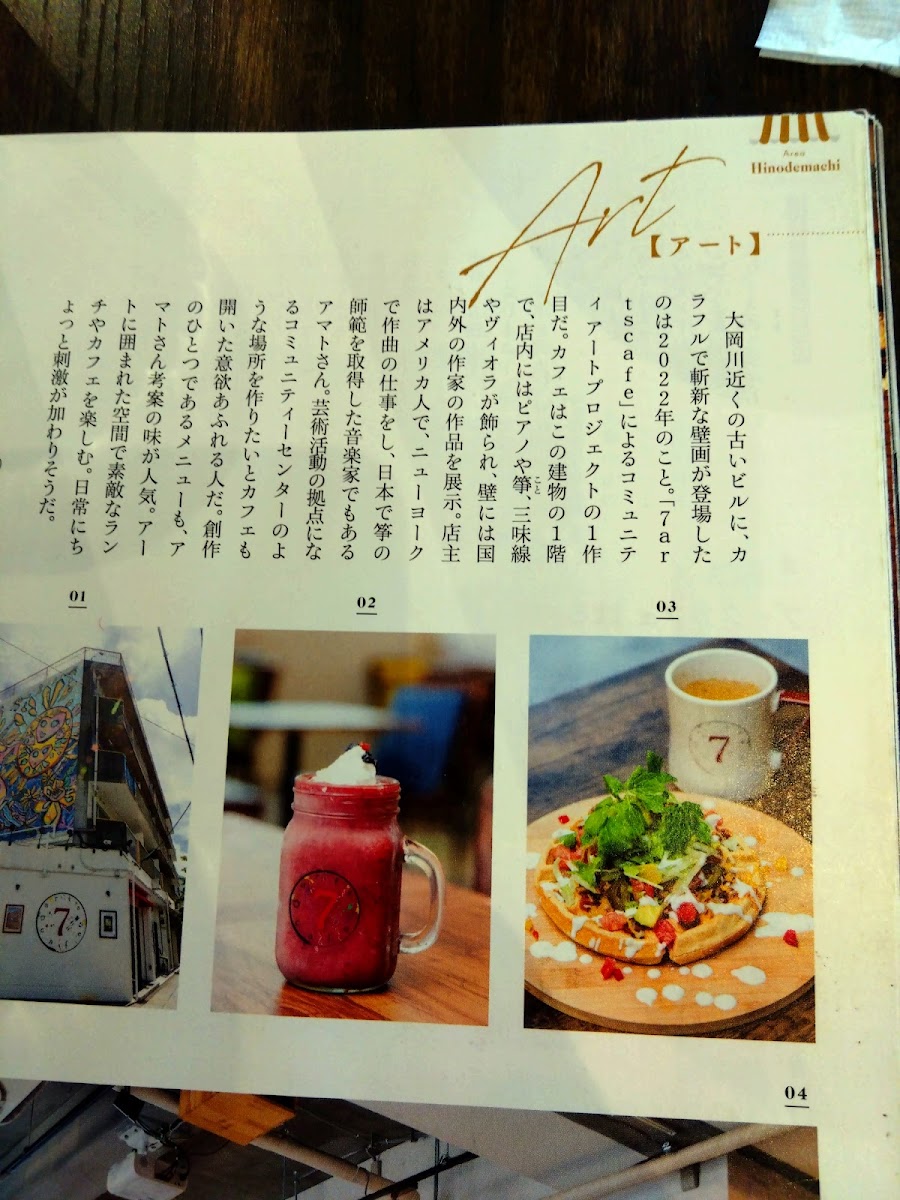 Area
Hinodemachi
Art
【アート】
大岡川近くの古いビルに、カ
ラフルで斬新な壁画が登場した
のは2022年のこと。「7ar
tscafe」によるコミュニテ
ィアートプロジェクトの1作
目だ。カフェはこの建物の1階
で、店内にはピアノや箏、三味線
こと
やヴィオラが飾られ、壁には国
内外の作家の作品を展示。店主
はアメリカ人で、ニューヨーク
で作曲の仕事をし、日本で箏の
師範を取得した音楽家でもある
アマトさん。芸術活動の拠点にな
るコミュニティーセンターのよ
うな場所を作りたいとカフェも
開いた意欲あふれる人だ。創作
のひとつであるメニューも、ア
マトさん考案の味が人気。アー
トに囲まれた空間で素敵なラン
チやカフェを楽しむ。日常にち
ょっと刺激が加わりそうだ。
01
02
03
7
7
7
04